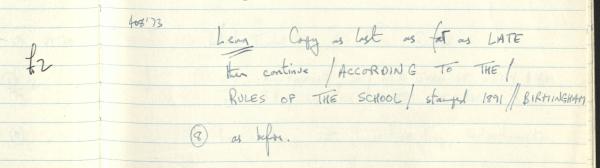 408'73
Leon Copy as last as far as LATE
£2
then continue / ACCORDING TO THE /
RULES OF THE SCHOOL / stamped 1891 // BIRMINGHAM
⑧ as before.